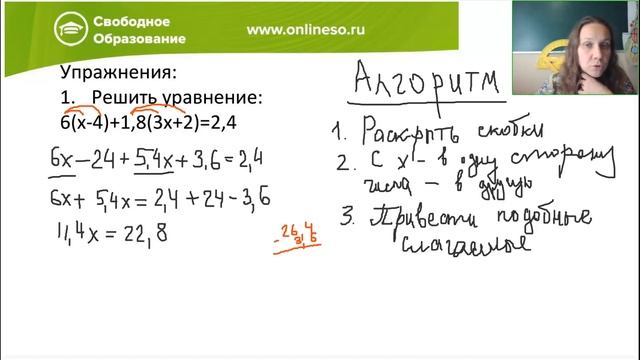 Свободное
Образование
www.onlineso.ru
Упражнения:
1. Решить уравнение:
6(х-4)+1,8(3х+2)=2,4
6x - 24 + 5,4x + 3,6 = 2,4
6x + 5,4x = 2,4 + 24 - 3,6
11,4x = 22,8
- 26,4
3,6
Алгоритм
1. Раскрыть скобки
2. С x - в одну сторону
числа - в другую
3. Привести подобные
слагаемые